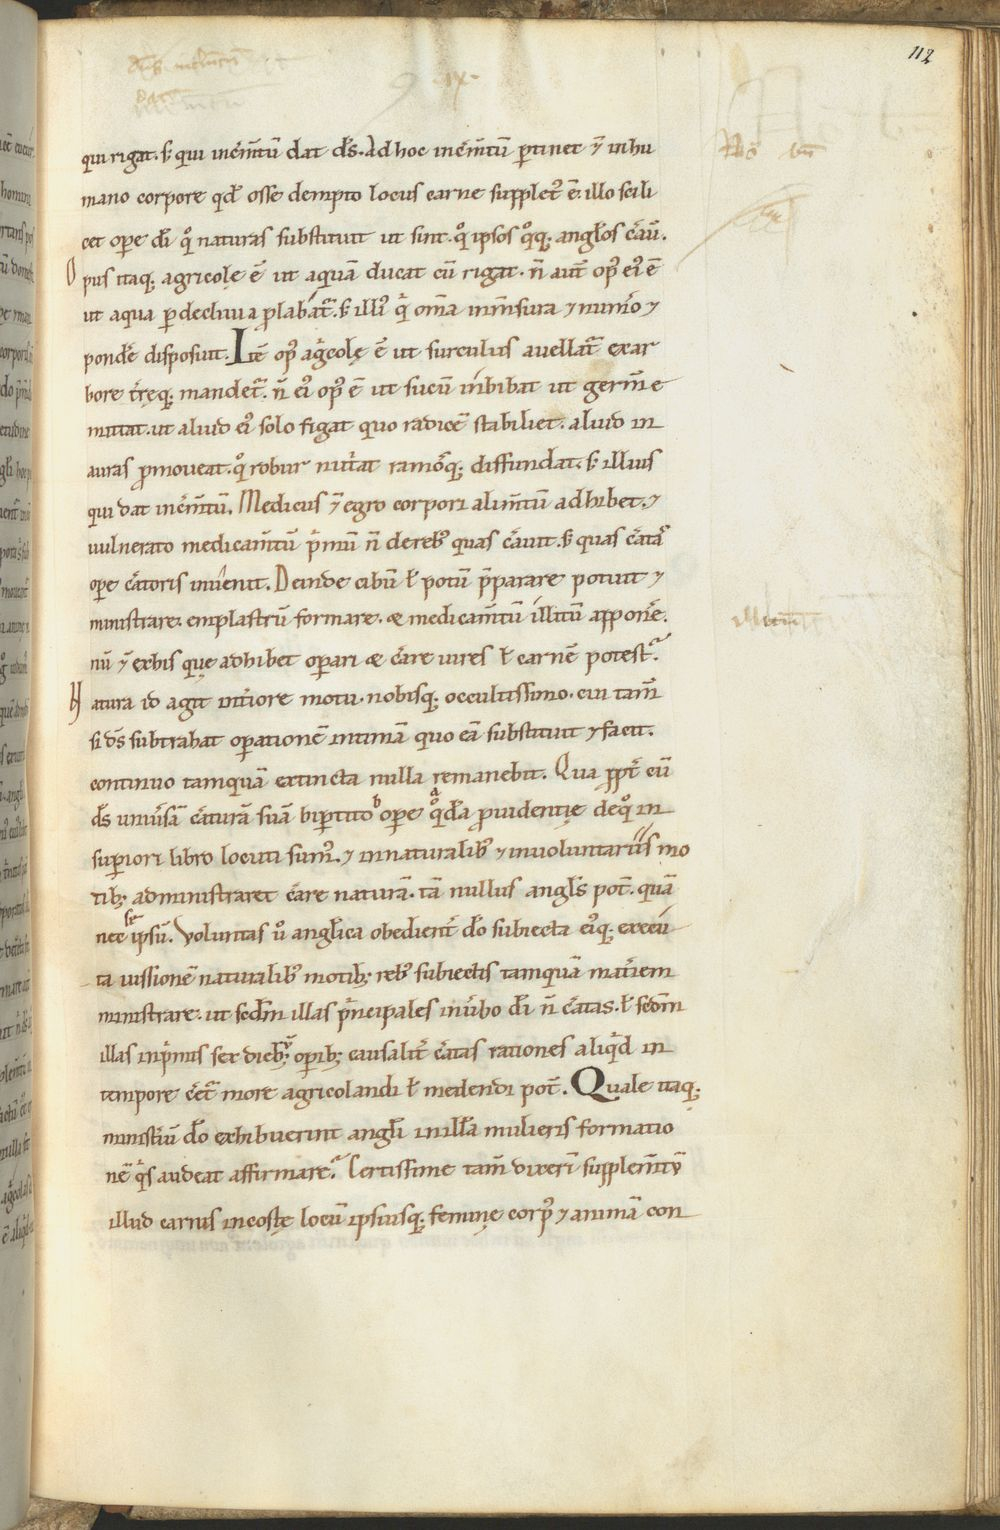 112
qui rigat. s; qui incrm̄tū dat dš. Ad hoc incrm̄tū ptinet &̄ in hu
mano corpore qđ osse dempto locus carne suppletꝰ ē. illo scili
cet ope dī qͦ naturas substituit ut sint. qͦ ipsos qͦq; anglos c̄auit.
Opus itaq; agricolę ē ut aquā ducat cū rigat. n̄ aut̄ opꝰ eiꝰ ē
ut aqua p decliuia plabat̄. s; illiꝰ qͥ om̄a in m̄sura ⁊ num̄o ⁊
pond̄e disposuit. Itē opꝰ ag̓colę ē ut surculus auellat̄ ex ar
bore t̄ręq; mandet̄. n̄ eiꝰ opꝰ ē ut sucū inbibat ut germ̄ e
mittat. ut aliud eiꝰ solo figat quo radicē stabiliet. aliud in
auras pmoueat. qͦ robur nut̄at ramosq; diffundat. s; illius
qui dat incrm̄tū. Medicus &̄ egro corpori alim̄tū adhibet. ⁊
uulnerato medicam̄tū p̓mū n̄ de rebꝰ quas c̄auit. s; quas c̄atas
ope c̄atoris inuenit. Deinde cibū ł potū p̄parare potuit ⁊
ministrare. emplastrū formare. & medicam̄tū illitū appon̄e.
nū &̄ ex his quę adhibet opari & c̄are uires ł carnē potest?
Natura id agit int̄iore motu. nobisq; occultissimo. cui tam̄
si dš subtrahat opationē intimā quo eā substituit ⁊ facit.
continuo tamquā extincta nulla remanebit. Qua ppt̄ cū
dš uniūsā c̄aturā suā bipertito ope qͦdā puidentię de qͦ in
supiori libro locuti sumꝰ. ⁊ in naturalibꝰ ⁊ in uoluntariis mo
tib; administraret c̄are naturā. tā nullus angls̄ pot̄. quā
nec se ipsū. Voluntas ū anglica obedient̄ dō subiecta eiꝰq; execu
ta iussionē naturalibꝰ motib; rebꝰ subiectis tamquā mat̄iem
ministrare. ut scdm̄ illas p̓ncipales in ūbo dī n̄ c̄atas. ł scdm̄
illas in p̓mis sex dierū opib; causalit̄ c̄atas rationes aliqͥd in
tempore c̄et̄ more agricolandi ł medendi pot̄. Quale itaq;
minist̄iū dō exhibuerint angli in illa mulieris formatio
nē qͥs audeat affirmare? Certissime tam̄ dixerī supplem̄tū
illud carnis in costę locū ipsiusq; feminę corpꝰ ⁊ animā con